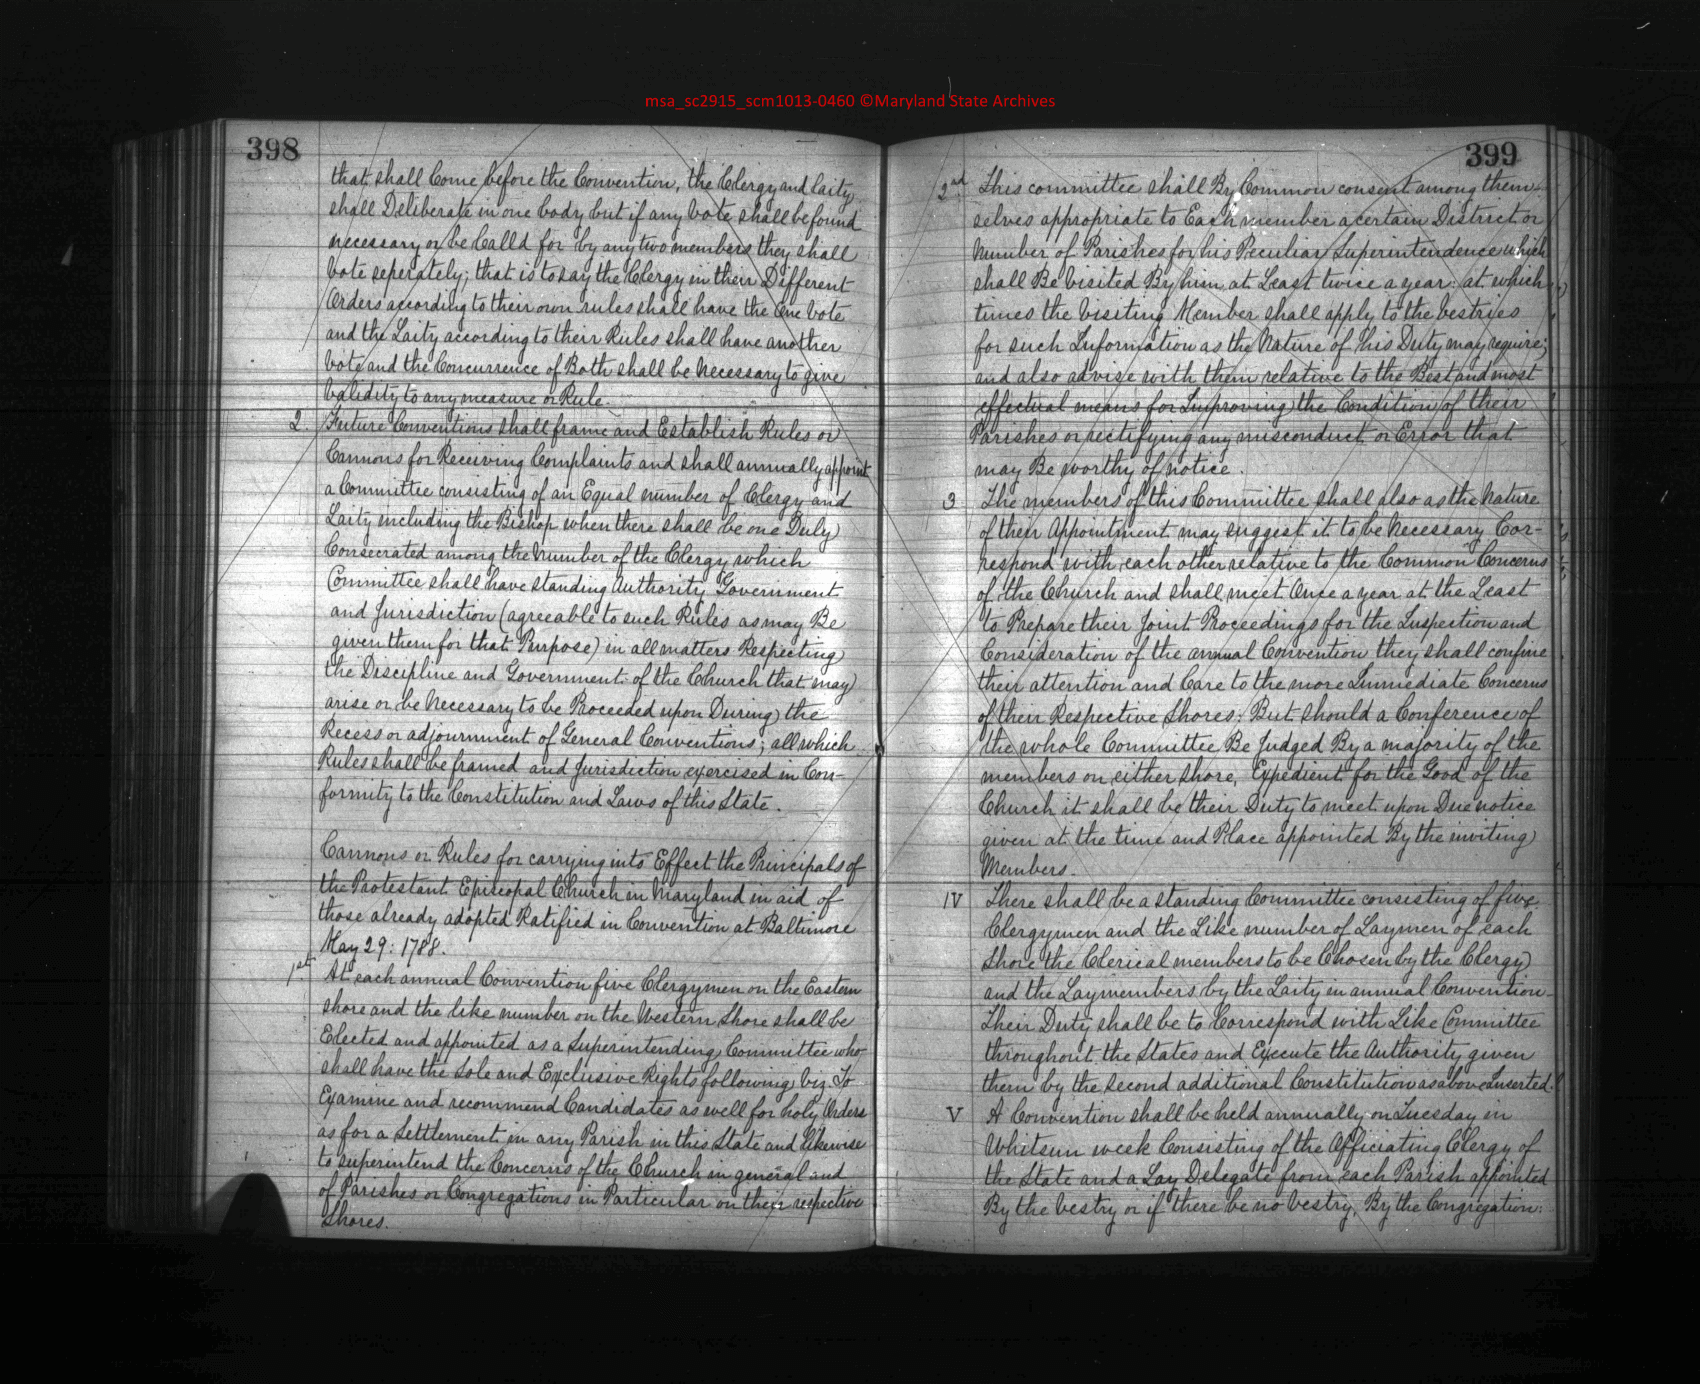 msa_sc2915_scm1013-0460 ©Maryland State Archives
398
that shall Come before the Convention, the Clergy and Laity
shall Deliberate in one body but if any Vote shall be found
necessary or be Calld for by any two members they shall
Vote seperately; that is to say the Clergy in their Different
Orders according to their own rules shall have the One Vote
and the Laity according to their Rules shall have another
Vote and the Concurrence of Both shall be Necessary to give
Validity to any measure or Rule.
2. Future Conventions shall frame and Establish Rules or
Cannons for Receiving Complaints and shall annually appoint
a Committee consisting of an Equal number of Clergy and
Laity including the Bishop when there shall be one Duly
Consecrated among the Number of the Clergy which
Committee shall have standing Authority Government
and Jurisdiction (agreeable to such Rules as may Be
given them for that Purpose) in all matters Respecting
the Discipline and Government of the Church that may
arise or be Necessary to be Proceeded upon During the
Recess or adjournment of General Conventions; all which
Rules shall be framed and Jurisdiction exercised in Con-
formity to the Constitution and Laws of this State.
Cannons or Rules for carrying into Effect the Principals of
the Protestant Episcopal Church in Maryland in aid of
those already adopted Ratified in Convention at Baltimore
May 29: 1788.
1st At each annual Convention five Clergymen on the Eastern
shore and the like number on the Western Shore shall be
Elected and appointed as a Superintending Committee who
shall have the Sole and Exclusive Rights following viz To
Examine and recommend Candidates as well for holy Orders
as for a Settlement in any Parish in this State and likewise
to superintend the Concerns of the Church in general and
of Parishes or Congregations in Particular on their respective
Shores.
399
2nd This committee shall By Common consent among them-
selves appropriate to Each member a certain District or
Number of Parishes for his Peculiar Superintendence which
shall Be Visited By him at Least twice a year: at which
times the Visiting Member shall apply to the vestries
for such Information as the Nature of his Duty may require;
and also advise with them relative to the Best and most
effectual means for Improving the Condition of their
Parishes or rectifying any misconduct or Error that
may Be worthy of notice.
3 The members of this Committee shall also as the Nature
of their Appointment may suggest it to be Necessary Cor-
respond with each other relative to the Common Concerns
of the Church and shall meet Once a year at the Least
to Prepare their Joint Proceedings for the Inspection and
Consideration of the annual Convention they shall confine
their attention and Care to the more Immediate Concerns
of their Respective Shores; But should a Conference of
the whole Committee Be Judged By a majority of the
members on either Shore, Expedient for the Good of the
Church it shall be their Duty to meet upon Due notice
given at the time and Place appointed By the inviting
Members.
IV There shall be a standing Committee consisting of five
Clergymen and the Like number of Laymen of each
Shore the Clerical members to be Chosen by the Clergy
and the Laymembers by the Laity in annual Convention
Their Duty shall be to Correspond with Like Committee
throughout the States and Execute the Authority given
them by the Second additional Constitution as above Inserted.
V A Convention shall be held annually on Tuesday in
Whitsun week Consisting of the Officiating Clergy of
the State and a Lay Delegate from each Parish appointed
By the Vestry or if there be no Vestry, By the Congregation: